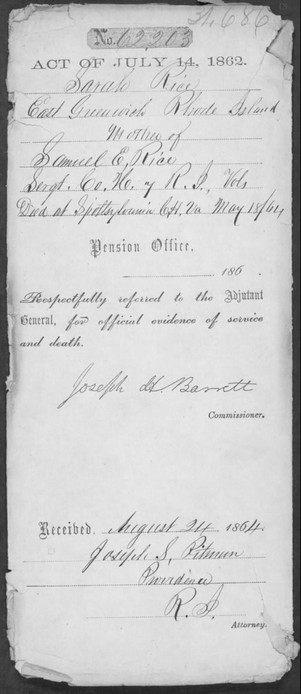 24,686
No. 62203
ACT OF JULY 14, 1862.
Sarah Rice
East Greenwich Rhode Island
Mother of
Samuel E. Rice
Sergt. Co. H. 7 R. I. Vols
Died at Spottsylvania C.H. Va May 18/64
Pension Office.
186 .
Respectfully referred to the Adjutant
General, for official evidence of service
and death.
Joseph H. Barrett
Commissioner.
Received. August 24 1864.
Joseph S. Pitman
Providence
R. I.
Attorney.